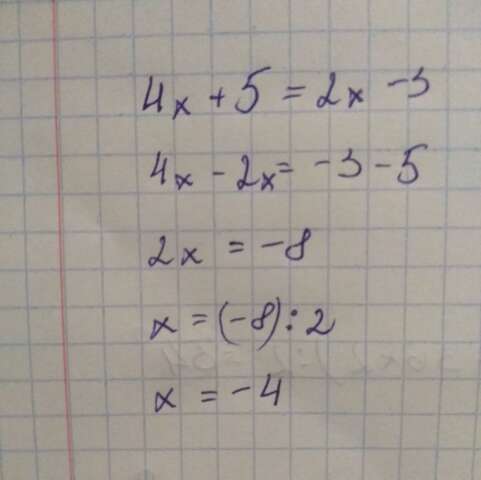 4x + 5 = 2x - 3
4x - 2x = -3 - 5
2x = -8
x = (-8) : 2
x = -4